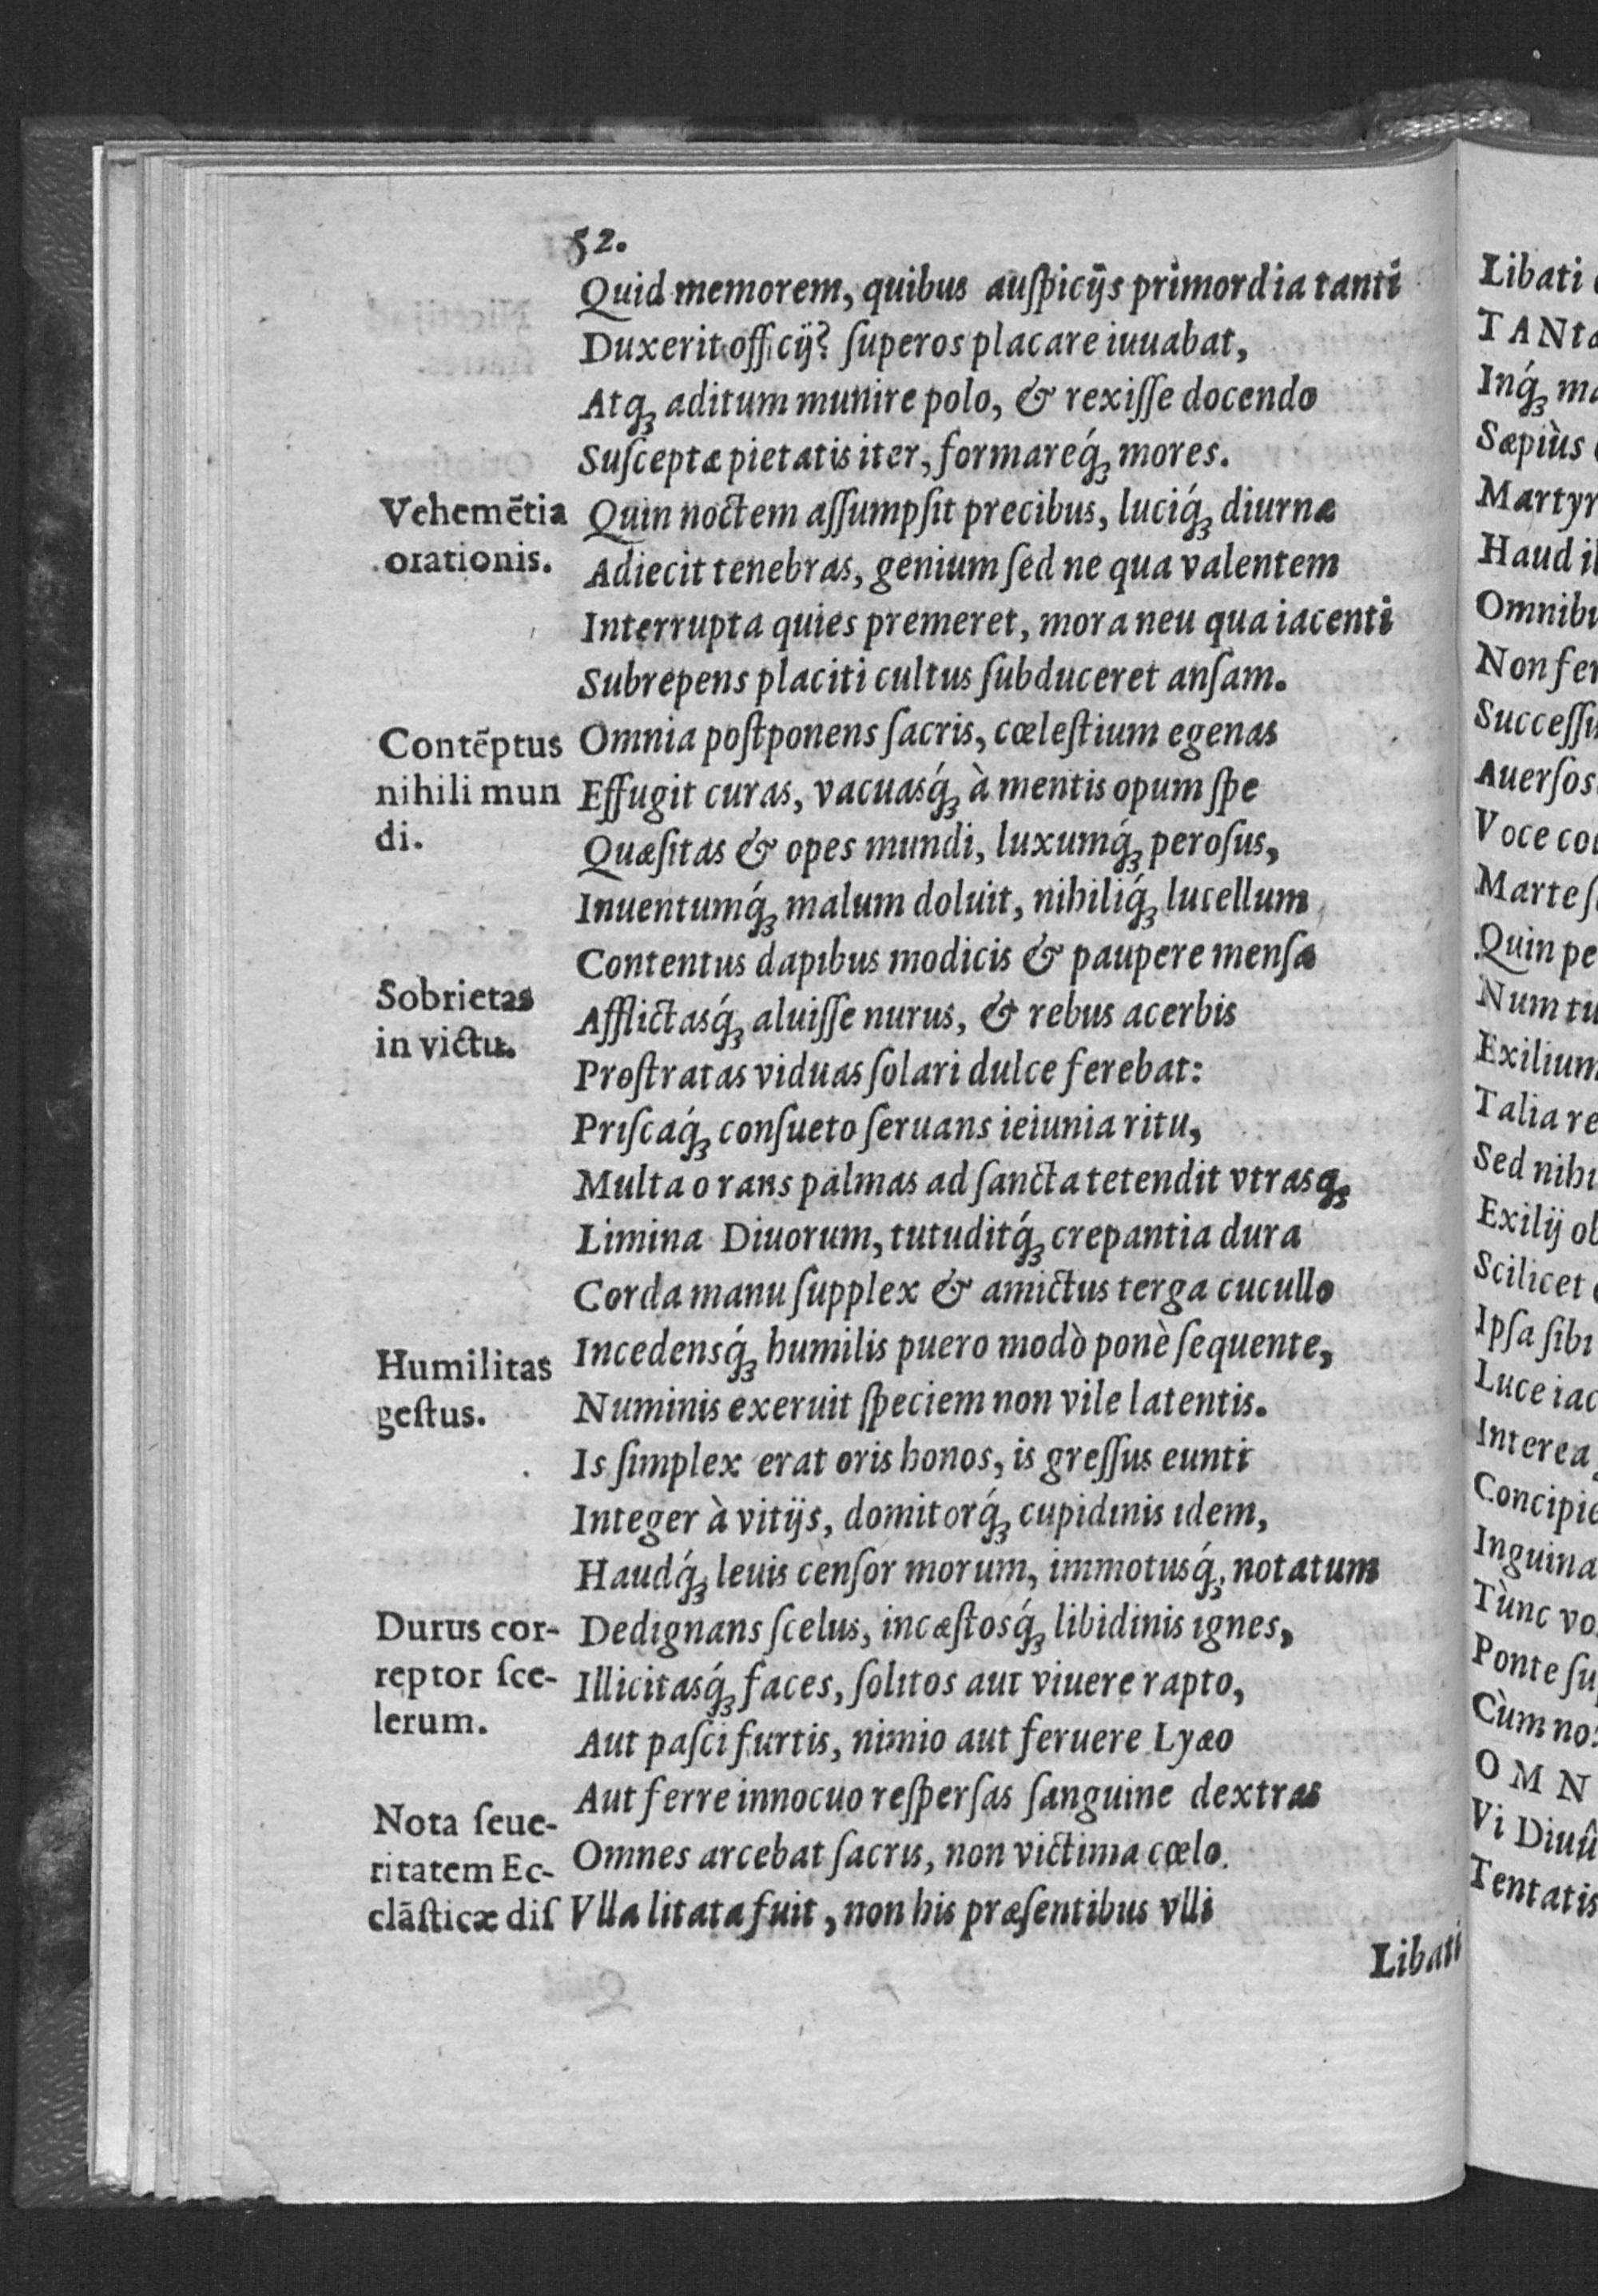 52.
Quid memorem, quibus auſpicijs primordia tanti
Duxerit officij? ſuperos placare iuuabat,
Atqꝫ aditum munire polo, & rexiſſe docendo
Suſceptæ pietatis iter, formareq́ꝫ mores.
Vehemẽtia
orationis.
Quin noctem aſſumpſit precibus, luciq́ꝫ diurnæ
Adiecit tenebras, genium ſed ne qua valentem
Interrupta quies premeret, mora neu qua iacenti
Subrepens placiti cultus ſubduceret anſam.
Contẽptus
nihili mun
di.
Omnia poſtponens ſacris, cœleſtium egenas
Effugit curas, vacuasq́ꝫ à mentis opum ſpe
Quæſitas & opes mundi, luxumq́ꝫ peroſus,
Inuentumq́ꝫ malum doluit, nihiliq́ꝫ lucellum
Sobrietas
in victu.
Contentus dapibus modicis & paupere menſa
Afflictasq́ꝫ aluiſſe nurus, & rebus acerbis
Proſtratas viduas ſolari dulce ferebat:
Priſcaq́ꝫ conſueto ſeruans ieiunia ritu,
Multa orans palmas ad ſancta tetendit vtrasqꝫ
Limina Diuorum, tutuditq́ꝫ crepantia dura
Corda manu ſupplex & amictus terga cucullo
Humilitas
geſtus.
Incedensq́ꝫ humilis puero modò ponè ſequente,
Numinis exeruit ſpeciem non vile latentis.
Is ſimplex erat oris honos, is greſſus eunti
Integer à vitijs, domitorq́ꝫ cupidinis idem,
Haudq́ꝫ leuis cenſor morum, immotusq́ꝫ notatum
Durus cor-
reptor ſce-
lerum.
Dedignans ſcelus, incæſtosq́ꝫ libidinis ignes,
Illicitasq́ꝫ faces, ſolitos aut viuere rapto,
Aut paſci furtis, nimio aut feruere Lyæo
Aut ferre innocuo reſperſas ſanguine dextras
Nota ſeue-
ritatem Ec-
clãſticæ diſ
Omnes arcebat ſacris, non victima cœlo
Vlla litata fuit, non his præſentibus vlli
Libati
Libati
Inq́ꝫ
Sæpiùs
Haud
Quin
Exilium
Talia
Sed
Exilij
Scilicet
Ipſa ſibi
Luce
Interea
Inguina
Tùnc
Ponte
Cùm
Vi Diuû
Tentatis